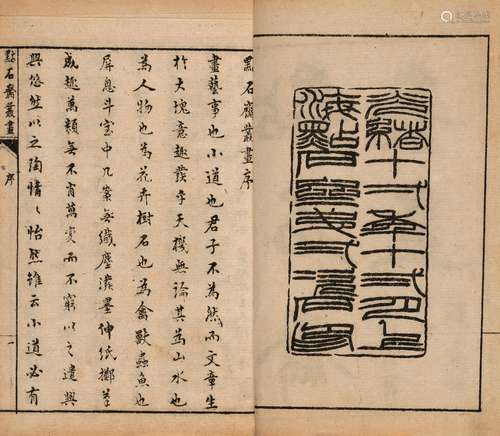 光緒十一年十二月上
海點石齋第二次
點石齋叢畫序
畫藝事也小道也君子不為然而文章生
於大塊意趣發乎天機無論其為山水也
為人物也為花卉樹石也為禽獸蟲魚也
屏息斗室中几案無纖塵潑墨伸紙擲筆
成趣萬類無不肖萬变而不窮以之遣興
興悠然以之陶情〻怡然雖云小道必有
點石齋叢畫 序 一